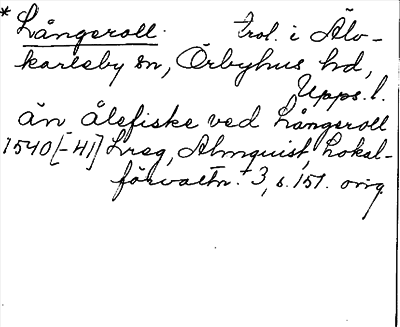 * Långsroll. trol. i Älv-
karleby sn, Örbyhus hd,
Upps. l.
än ålefiske ved Långsroll
1540[-41] Lreg, Almquist, Lokal-
förvaltn. 3, s. 151. orig